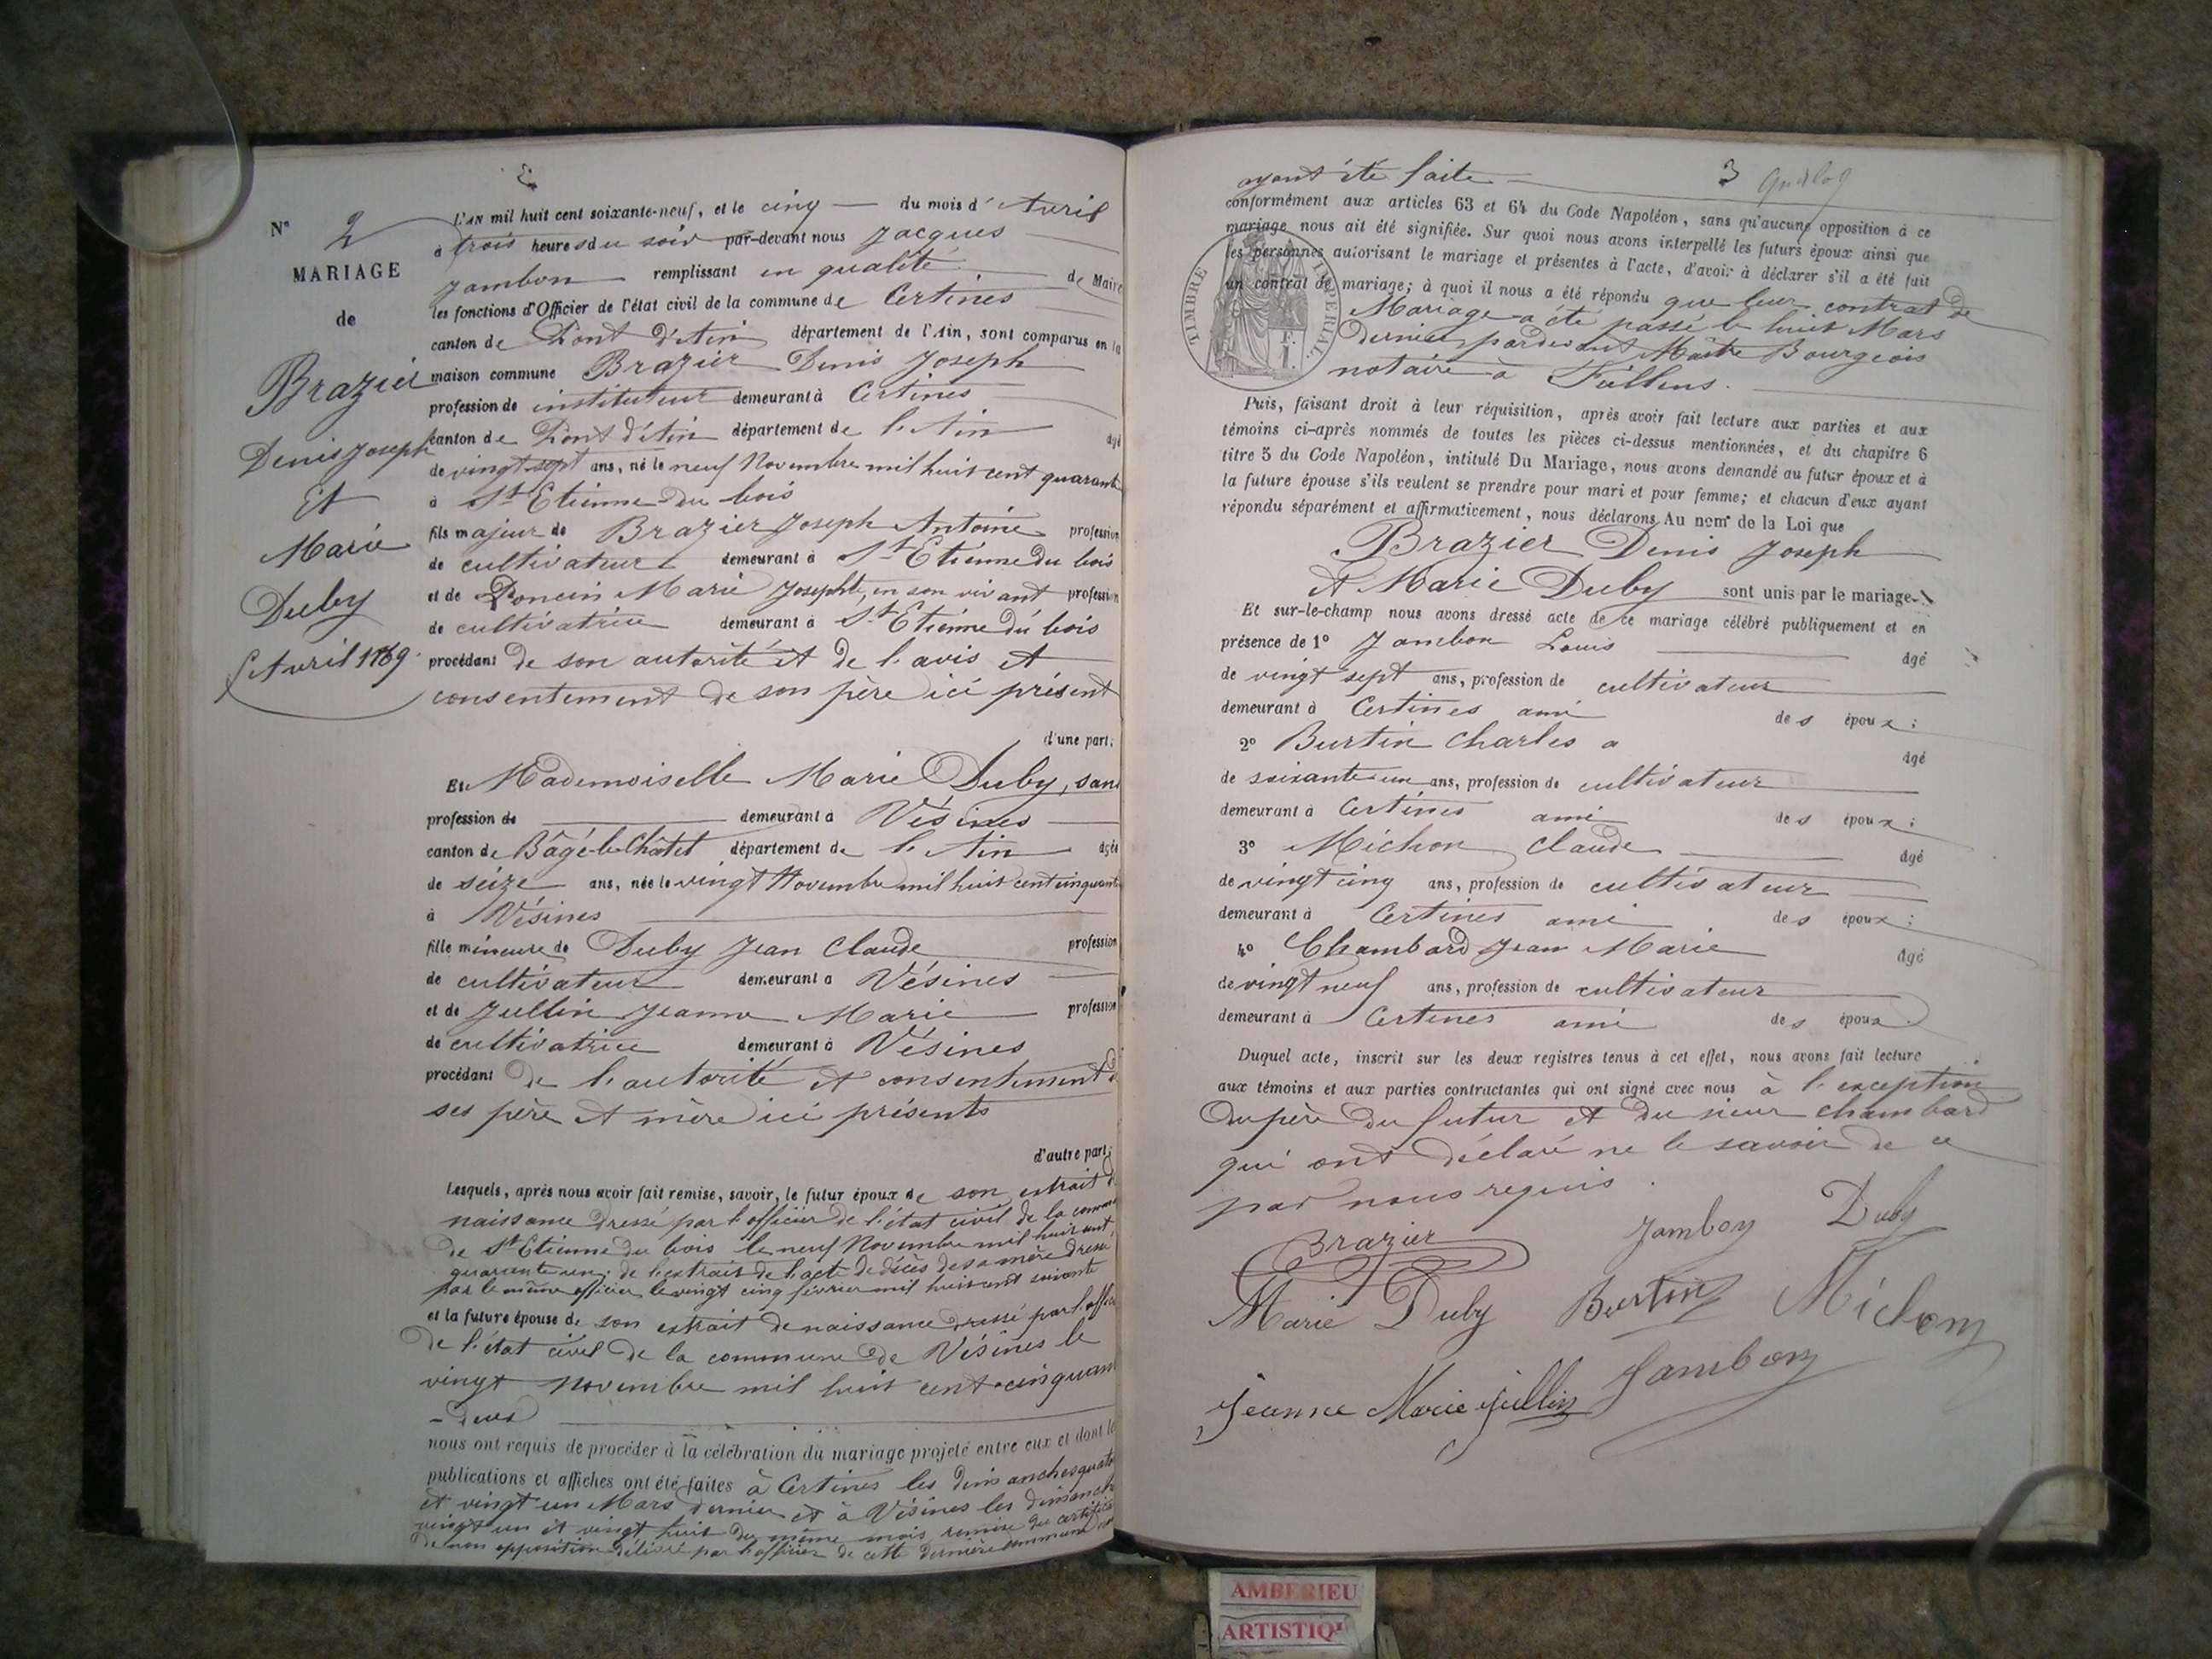 2
Nº 2
MARIAGE
de
Brazier
Denis Joseph
Et
Marie
Duby
5 Avril 1869
L'AN mil huit cent soixante-neuf, et le cinq du mois d'Avril
à trois heures du soir par-devant nous Jacques
Jambon remplissant en qualité de Maire
les fonctions d'Officier de l'état civil de la commune de Certines
canton de Pont d'Ain département de l'Ain, sont comparus en la
maison commune Brazier Denis Joseph
profession de instituteur demeurant à Certines
canton de Pont d'Ain département de l'Ain âgé
de vingt sept ans, né le neuf Novembre mil huit cent quarante
à St Etienne du bois
fils majeur de Brazier Joseph Antoine profession
de cultivateur demeurant à St Etienne du bois
et de Poncin Marie Josephte, en son vivant profession
de cultivatrice demeurant à St Etienne du bois
procédant de son autorité et de l'avis et
consentement de son père ici présent
d'une part;
Et Mademoiselle Marie Duby, sans
profession de demeurant à Vésines
canton de Bâgé-le-Châtel département de l'Ain âgée
de seize ans, née le vingt Novembre mil huit cent cinquante
à Vésines
fille mineure de Duby Jean Claude profession
de cultivateur demeurant à Vésines
et de Jullin Jeanne Marie profession
de cultivatrice demeurant à Vésines
procédant de l'autorité et consentement de
ses père et mère ici présents
d'autre part;
Lesquels, après nous avoir fait remise, savoir, le futur époux de son extrait de
naissance dressé par l'officier de l'état civil de la commune
de St Etienne du bois le neuf Novembre mil huit cent
quarante un; de l'extrait de l'acte de décès de sa mère dressé
par le même officier le vingt cinq février mil huit cent soixante
et la future épouse de son extrait de naissance dressé par l'officier
de l'état civil de la commune de Vésines le
vingt novembre mil huit cent cinquante
- deux
nous ont requis de procéder à la célébration du mariage projeté entre eux et dont les
publications et affiches ont été faites à Certines les dimanches quatorze
et vingt un Mars dernier et à Vésines les dimanches
vingt un et vingt huit du même mois, remise du certificat
de non opposition délivré par l'officier de cette dernière commune nous
3
ayant été faite
conformément aux articles 63 et 64 du Code Napoléon, sans qu'aucune opposition à ce
mariage nous ait été signifiée. Sur quoi nous avons interpellé les futurs époux ainsi que
les personnes autorisant le mariage et présentes à l'acte, d'avoir à déclarer s'il a été fait
un contrat de mariage; à quoi il nous a été répondu que leur contrat de
Mariage a été passé le huit Mars
dernier pardevant Maître Bourgeois
notaire à
TIMBRE IMPERIAL.
F.
1.
Puis, faisant droit à leur réquisition, après avoir fait lecture aux parties et aux
témoins ci-après nommés de toutes les pièces ci-dessus mentionnées, et du chapitre 6
titre 5 du Code Napoléon, intitulé Du Mariage, nous avons demandé au futur époux et à
la future épouse s'ils veulent se prendre pour mari et pour femme; et chacun d'eux ayant
répondu séparément et affirmativement, nous déclarons Au nom de la Loi que
Brazier Denis Joseph
et Marie Duby sont unis par le mariage.
Et sur-le-champ nous avons dressé acte de ce mariage célébré publiquement et en
présence de 1º Jambon Louis âgé
de vingt sept ans, profession de cultivateur
demeurant à Certines ami des époux;
2º Burtin Charles âgé
de soixante un ans, profession de cultivateur
demeurant à Certines ami des époux;
3º Michon Claude âgé
de vingt cinq ans, profession de cultivateur
demeurant à Certines ami des époux;
4º Chambard Jean Marie âgé
de vingt neuf ans, profession de cultivateur
demeurant à Certines ami des époux.
Duquel acte, inscrit sur les deux registres tenus à cet effet, nous avons fait lecture
aux témoins et aux parties contractantes qui ont signé avec nous à l'exception
du père du futur et du sieur Chambard
qui ont déclaré ne le savoir de ce
par nous requis.
Brazier Jambon Duby
Marie Duby Burtin Michon
Jeanne Marie Jullin Jambon
AMBERIEU
ARTISTIQ